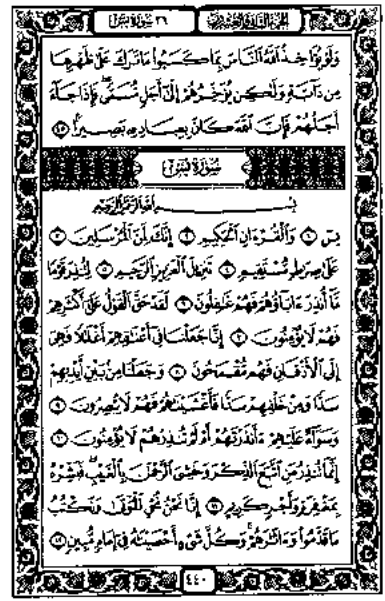 الجزء الثاني والعشرون
٣٦ سورة يس
وَلَوْ يُؤَاخِذُ ٱللَّهُ ٱلنَّاسَ بِمَا كَسَبُوا۟ مَا تَرَكَ عَلَىٰ ظَهْرِهَا
مِن دَآبَّةٍ وَلَٰكِن يُؤَخِّرُهُمْ إِلَىٰٓ أَجَلٍ مُّسَمًّى فَإِذَا جَآءَ
أَجَلُهُمْ فَإِنَّ ٱللَّهَ كَانَ بِعِبَادِهِۦ بَصِيرًۢا ٤٥
سورة يس
بِسْمِ ٱللَّهِ ٱلرَّحْمَٰنِ ٱلرَّحِيمِ
يسٓ ١ وَٱلْقُرْءَانِ ٱلْحَكِيمِ ٢ إِنَّكَ لَمِنَ ٱلْمُرْسَلِينَ ٣
عَلَىٰ صِرَٰطٍ مُّسْتَقِيمٍ ٤ تَنزِيلَ ٱلْعَزِيزِ ٱلرَّحِيمِ ٥ لِتُنذِرَ قَوْمًا
مَّآ أُنذِرَ ءَابَآؤُهُمْ فَهُمْ غَٰفِلُونَ ٦ لَقَدْ حَقَّ ٱلْقَوْلُ عَلَىٰٓ أَكْثَرِهِمْ
فَهُمْ لَا يُؤْمِنُونَ ٧ إِنَّا جَعَلْنَا فِىٓ أَعْنَٰقِهِمْ أَغْلَٰلًا فَهِىَ
إِلَى ٱلْأَذْقَانِ فَهُم مُّقْمَحُونَ ٨ وَجَعَلْنَا مِنۢ بَيْنِ أَيْدِيهِمْ
سَدًّا وَمِنْ خَلْفِهِمْ سَدًّا فَأَغْشَيْنَٰهُمْ فَهُمْ لَا يُبْصِرُونَ ٩
وَسَوَآءٌ عَلَيْهِمْ ءَأَنذَرْتَهُمْ أَمْ لَمْ تُنذِرْهُمْ لَا يُؤْمِنُونَ ١٠
إِنَّمَا تُنذِرُ مَنِ ٱتَّبَعَ ٱلذِّكْرَ وَخَشِىَ ٱلرَّحْمَٰنَ بِٱلْغَيْبِ فَبَشِّرْهُ
بِمَغْفِرَةٍ وَأَجْرٍ كَرِيمٍ ١١ إِنَّا نَحْنُ نُحْىِ ٱلْمَوْتَىٰ وَنَكْتُبُ
مَا قَدَّمُوا۟ وَءَاثَٰرَهُمْ وَكُلَّ شَىْءٍ أَحْصَيْنَٰهُ فِىٓ إِمَامٍ مُّبِينٍ ١٢
٤٤٠